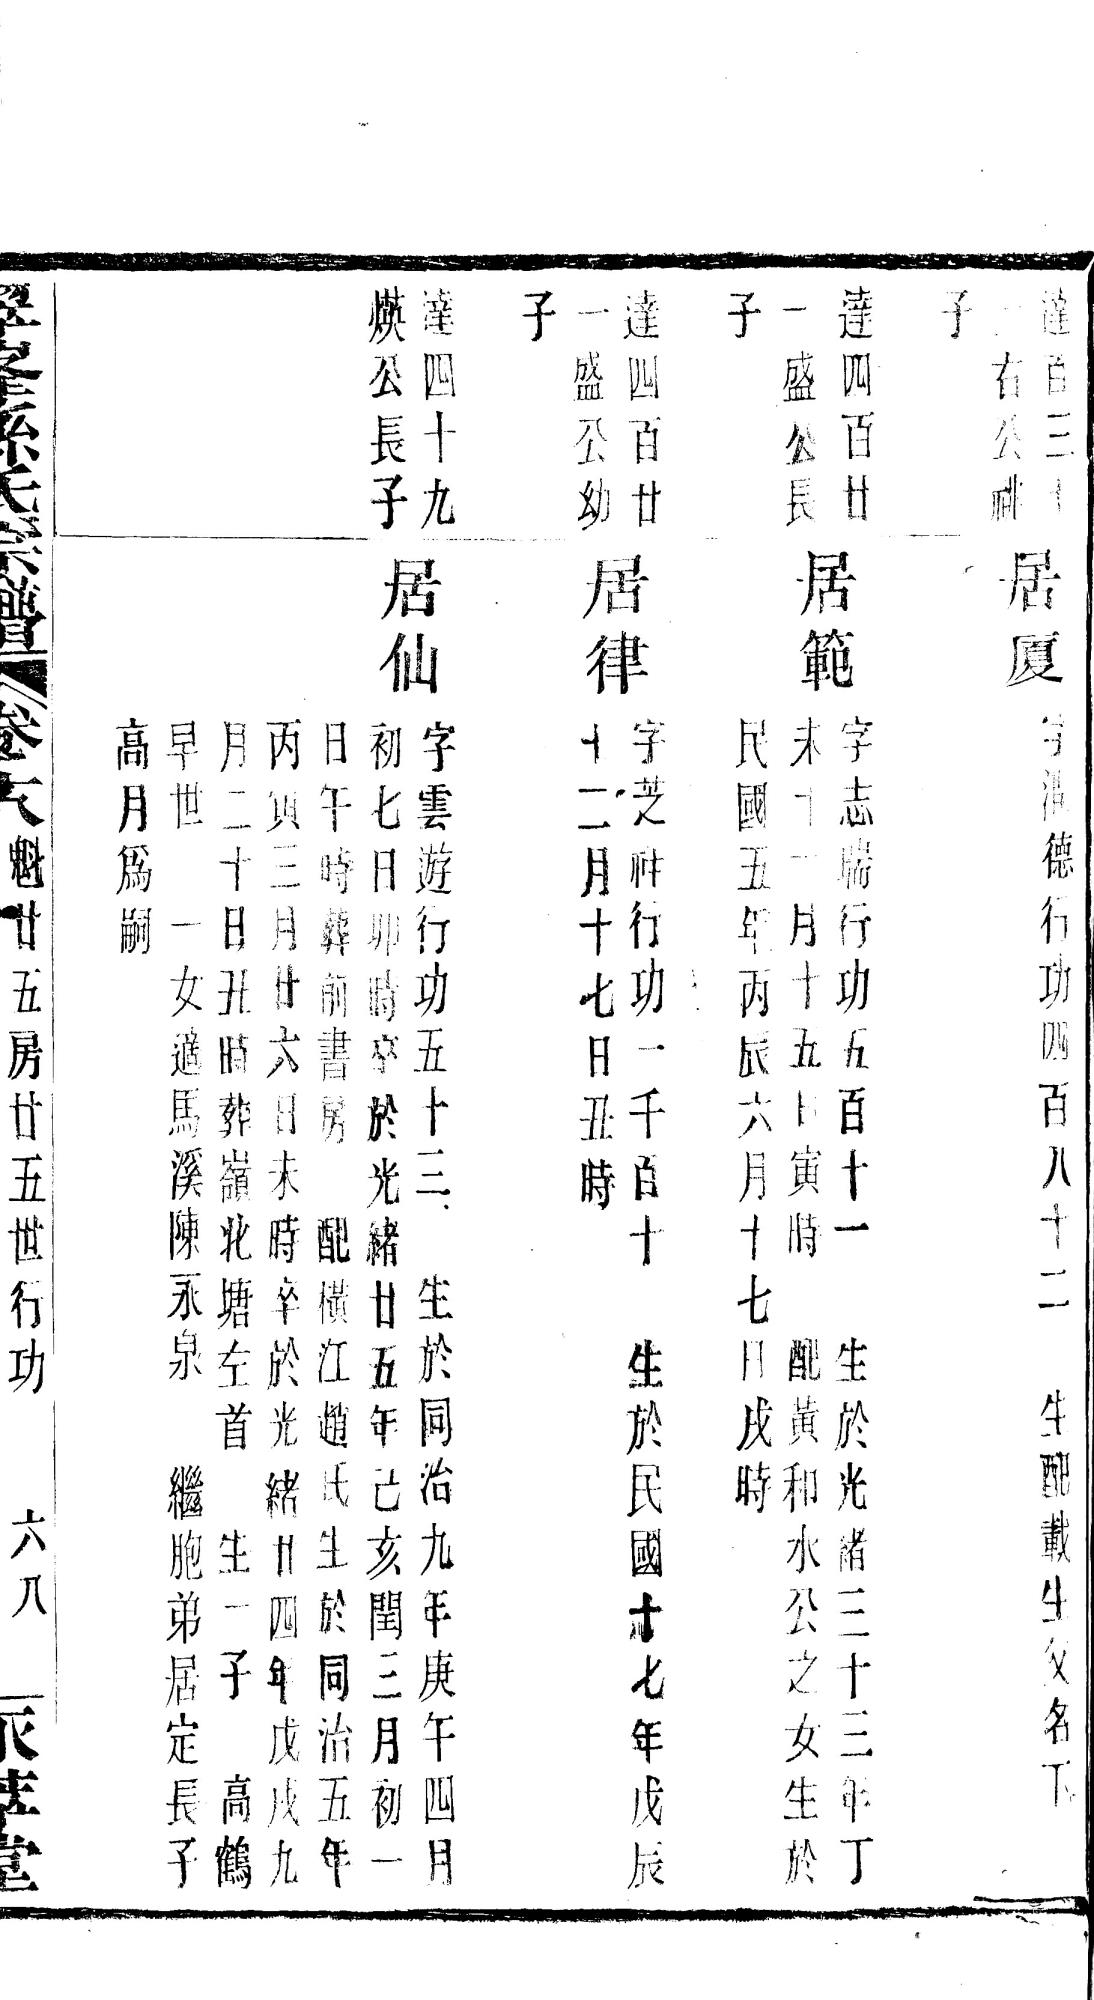 達百三十
右公祧
子
居厦
德行功四百八十二 生配載生父名下
達四百廿
一盛公長
子
居範
字志喘行功五百十一 生於光緒三十三年丁
未十一月十五日寅時 配黃和水公之女生於
民國五年丙辰六月十七日戌時
達四百廿
一盛公幼
子
居律
字芝祥行功一千百十 生於民國十七年戊辰
十二月十七日丑時
達四十九
煐公長子
居仙
字雲遊行功五十三 生於同治九年庚午四月
初七日卯時卒於光緒廿五年己亥閏三月初一
日午時葬前書房 配橫江趙氏生於同治五年
丙寅三月廿六日未時卒於光緒廿四年戊戌九
月二十日丑時葬嶺北塘左首 生一子 高鶴
早世 一女適馬溪陳永泉 繼胞弟居定長子
高月爲嗣
孫氏宗譜 卷六 魁廿五房廿五世行功 六八 萃堂